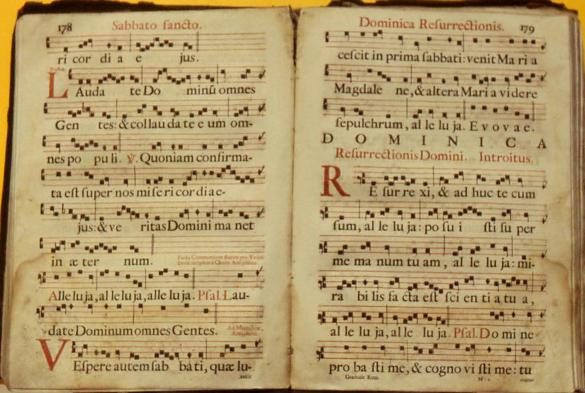 178 Sabbato sancto.
ri cor di a e jus.
L Auda te Do minũ omnes
Gen tes: & collau da te e um om-
nes po pu li. ℣. Quoniam confirma-
ta est super nos mi se ri cor di a e-
jus: & ve ritas Domini ma net
in æ ter num.
Alle lu ja, al le lu ja, alle lu ja. Psal. Lau-
date Dominum omnes Gentes.
V Espere autem sab ba ti, quæ lu-
Dominica Resurrectionis. 179
cescit in prima sabbati: venit Ma ri a
Magdale ne, & altera Mari a videre
sepulchrum, al le lu ja. E v o v a e.
D O M I N I C A
Resurrectionis Domini. Introitus.
R E sur re xi, & ad huc te cum
sum, al le lu ja: po su i sti su per
me ma num tu am, al le lu ja: mi-
ra bi lis fa cta est sci en ti a tu a,
al le lu ja, al le lu ja. Psal. Do mi ne
pro ba sti me, & cogno vi sti me: tu